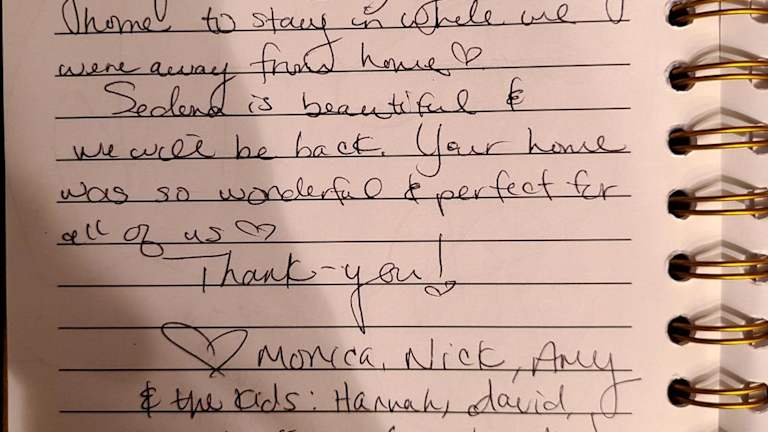 home to stay in while we
were away from home ♡
Sedona is beautiful &
we will be back. Your home
was so wonderful & perfect for
all of us ♡
Thank-you!
♡ Monica, Nick, Amy
& the kids: Hannah, david,